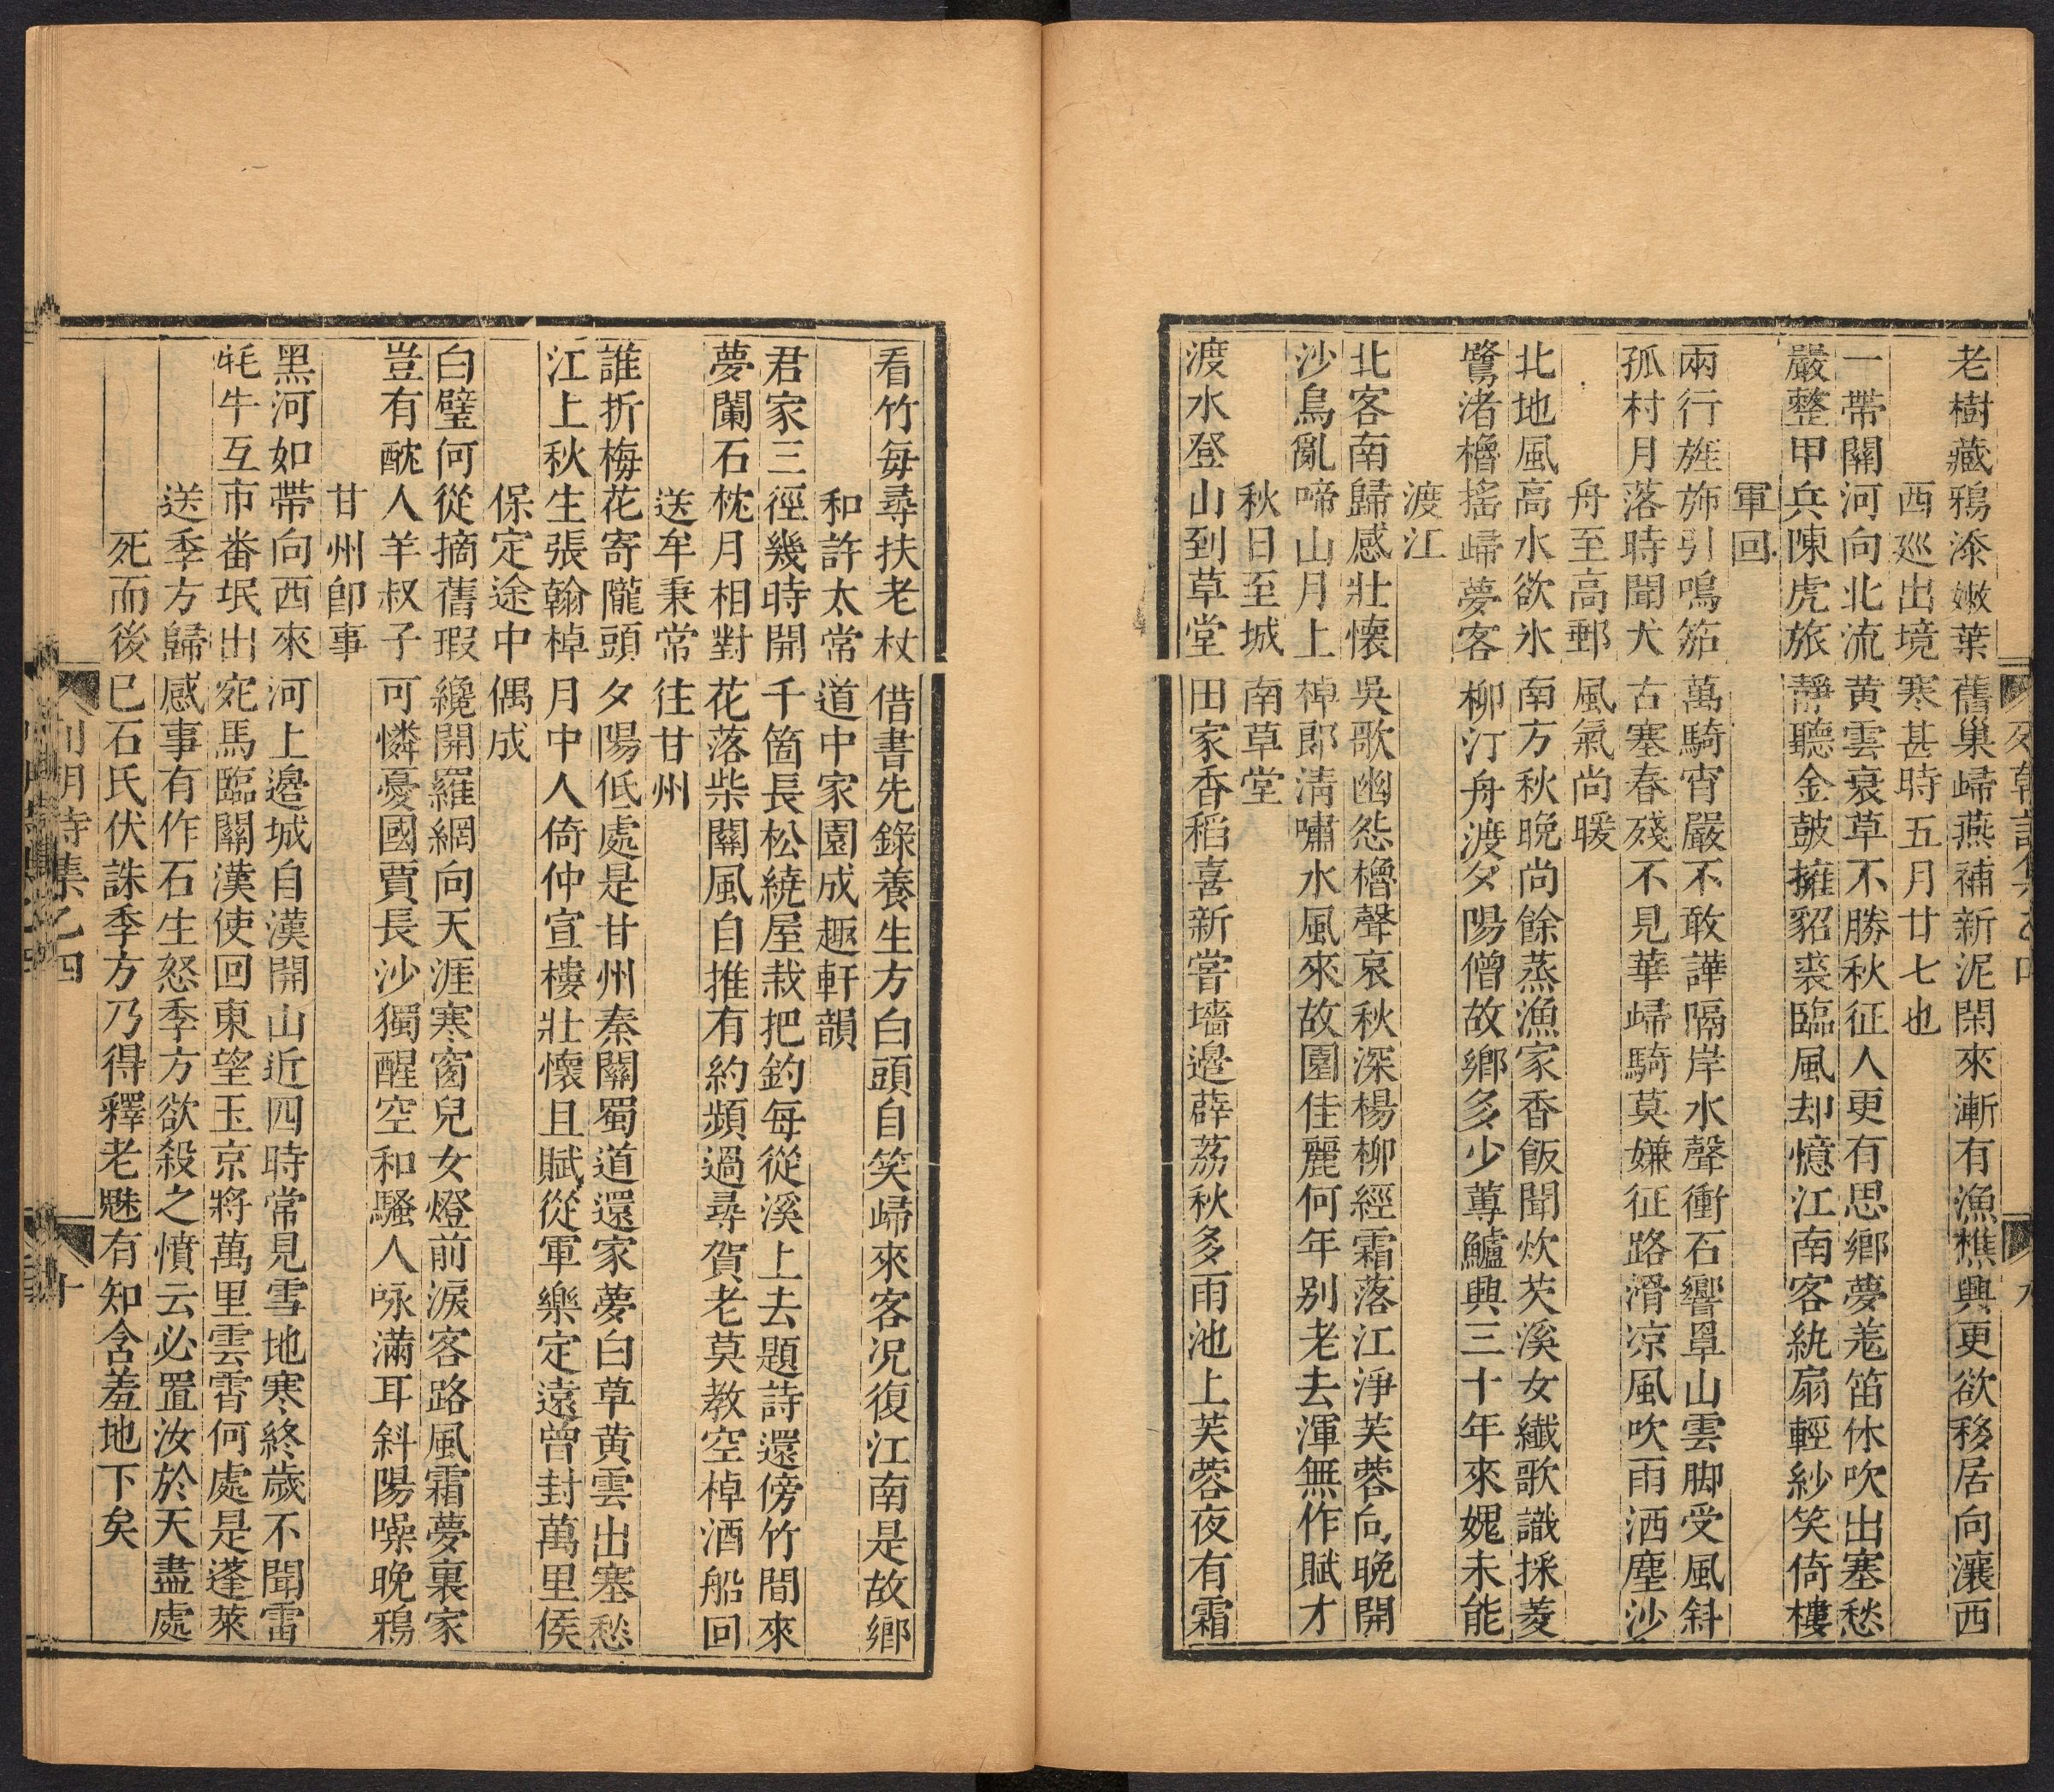 老樹藏鴉添嫩葉舊巢歸燕補新泥閑來漸有漁樵興更欲移居向瀼西
西廵出境寒甚時五月廿七也
一帶關河向北流黃雲衰草不勝秋征人更有思鄉夢羗笛休吹出塞愁
嚴整甲兵陳虎旅靜聽金鼓擁貂裘臨風却憶江南客紈扇輕紗笑倚樓
軍回
兩行旌斾引鳴笳萬騎宵嚴不敢譁隔岸水聲衝石響罩山雲脚受風斜
孤村月落時聞犬古塞春殘不見華歸騎莫嫌征路滑凉風吹雨洒塵沙
舟至高郵風氣尚暖
北地風高水欲氷南方秋晚尚餘蒸漁家香飯聞炊芡溪女纖歌識採菱
鷺渚櫓搖歸夢客柳汀舟渡夕陽僧故鄉多少蓴鱸興三十年來媿未能
渡江
北客南歸感壯懷吳歌幽怨櫓聲哀秋深楊柳經霜落江淨芙蓉向晚開
沙鳥亂啼山月上棹郎清嘯水風來故園佳麗何年别老去渾無作賦才
秋日至城南草堂
渡水登山到草堂田家香稻喜新嘗墻邉薜荔秋多雨池上芙蓉夜有霜
看竹每尋扶老杖借書先錄養生方白頭自笑歸來客况復江南是故鄉
和許太常道中家園成趣軒韻
君家三徑幾時開千箇長松繞屋栽把釣每從溪上去題詩還傍竹間來
夢闌石枕月相對花落柴關風自推有約頻過尋賀老莫教空棹酒船回
送牟秉常往甘州
誰折梅花寄隴頭夕陽低處是甘州秦關蜀道還家夢白草黃雲出塞愁
江上秋生張翰棹月中人倚仲宣樓壯懷且賦從軍樂定遠曾封萬里侯
保定途中偶成
白璧何從摘舊瑕纔開羅網向天涯寒窗兒女燈前淚客路風霜夢裏家
豈有酖人羊叔子可憐憂國賈長沙獨醒空和騷人咏滿耳斜陽噪晚鴉
甘州卽事
黑河如帶向西來河上邉城自漢開山近四時常見雪地寒終歲不聞雷
牦牛互市畨氓出宛馬臨關漢使回東望玉京將萬里雲霄何處是蓬萊
送季方歸感事有作石生怒季方欲殺之憤云必置汝於天盡處
死而後已石氏伏誅季方乃得釋老魅有知含羞地下矣
十